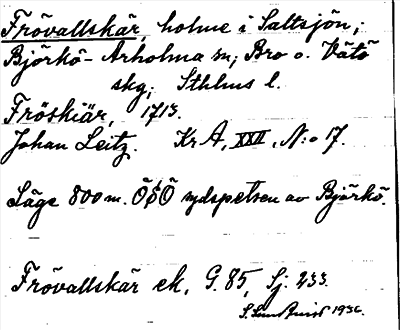 Frövallskär, holme i Saltsjön;
Björkö-Arholma sn; Bro o. Vätö
skg; Sthlms l.
Fröskiär, 1713.
Johan Leitz. Kr A, XXII, N:o 17.
Läge 800 m. ÖSÖ sydspetsen av Björkö.
Frövallskär ek, G. 85, Sj. 233.
1936.